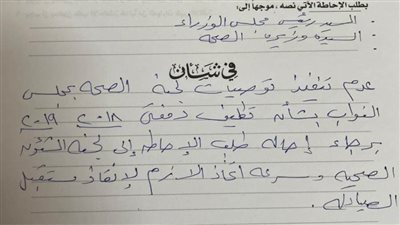 بطلب الإحاطة الآتي نصه، موجهاً إلى:
السيد رئيس مجلس الوزراء
السيدة وزيرة الصحة
في شأن
عدم تنفيذ توصيات لجنة الصحة بمجلس
النواب بشأن تكليف دفعتى ٢٠١٨ و ٢٠١٩
برجاء إحالة طلب الإحاطة إلى لجنة الشئون
الصحية وسرعة اتخاذ اللازم لإنقاذ مستقبل
الصيادلة.